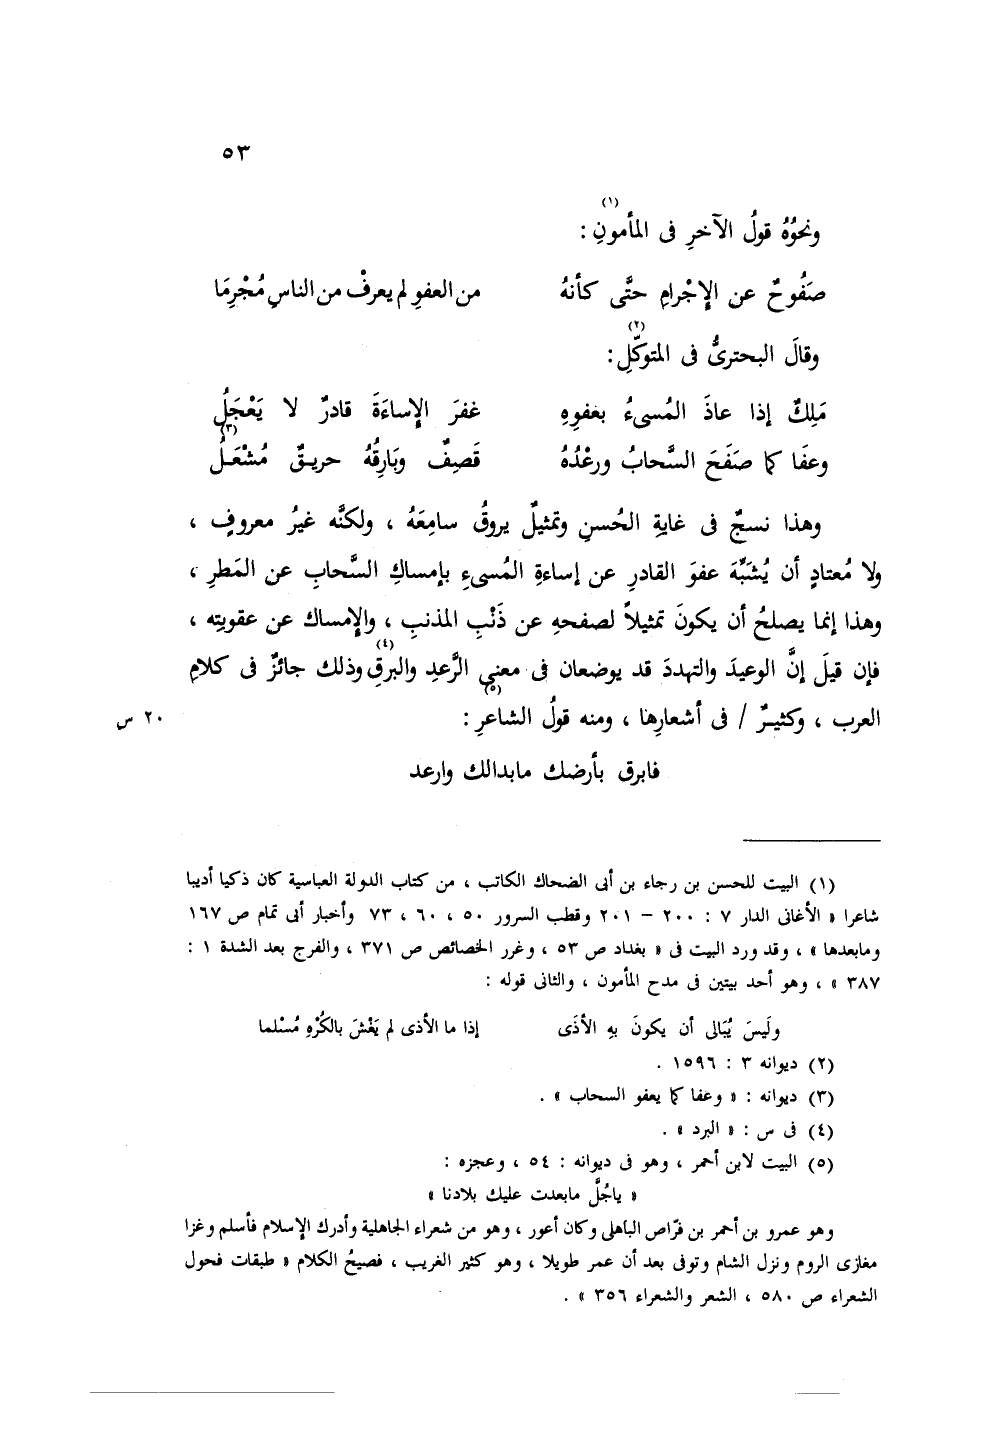 ٥٣
ونحوُهُ قولُ الآخرِ فى المأمونِ (١) :
صَفُوحٌ عن الإِجْرامِ حتَّى كأنهُ من العفوِ لم يعرفْ من الناسِ مُجْرِمَا
وقالَ البحترىُّ فى المتوكّلِ (٢) :
مَلِكٌ إذا عاذَ المُسىءُ بعفوِهِ غفرَ الإِساءَةَ قادرٌ لا يَعْجَلُ
وعفَا كما صَفَحَ السَّحابُ ورعْدُهُ قَصِفٌ وبَارِقُهُ حريـقٌ مُشْعَـلُ (٣)
وهذا نسجٌ فى غايةِ الحُسنِ وتمثيلٌ يروقُ سامِعَهُ ، ولكنَّه غيرُ معروفٍ ،
ولا مُعتادٍ أن يُشبِّهَ عفوَ القادرِ عن إساءةِ المُسىءِ بإمساكِ السَّحابِ عن المَطرِ ،
وهذا إنما يصلحُ أن يكونَ تمثيلاً لصفحهِ عن ذَنْبِ المذنبِ ، والإمساك عن عقوبتِه ،
فإن قيلَ إنَّ الوعيدَ والتهددَ قد يوضعان فى معنى الرَّعدِ والبرقِ (٤) وذلك جائزٌ فى كلامِ
العرب ، وكثيـرٌ / فى أشعارِها ، ومنه قولُ الشاعرِ (٥) : ٢٠ س
فابرق بأرضك مابدالك وارعد
(١) البيت للحسن بن رجاء بن أبى الضحاك الكاتب ، من كتاب الدولة العباسية كان ذكيا أديبا
شاعرا « الأغانى الدار ٧ : ٢٠٠ – ٢٠١ وقطب السرور ٥٠ ، ٦٠ ، ٧٣ وأخبار أبى تمام ص ١٦٧
ومابعدها » ، وقد ورد البيت فى « بغداد ص ٥٣ ، وغرر الخصائص ص ٣٧١ ، والفرج بعد الشدة ١ :
٣٨٧ » ، وهو أحد بيتين فى مدح المأمون ، والثانى قوله :
ولَيسَ يُبَالى أن يكونَ بهِ الأذَى إذا ما الأذى لم يَغْشَ بالكُرْهِ مُسْلما
(٢) ديوانه ٣ : ١٥٩٦ .
(٣) ديوانه : « وعفا كما يعفو السحاب » .
(٤) فى س : « البرد » .
(٥) البيت لابن أحمر ، وهو فى ديوانه : ٥٤ ، وعجزه :
« ياجُلَّ مابعدت عليك بلادنا »
وهو عمرو بن أحمر بن فرّاص الباهلى وكان أعور ، وهو من شعراء الجاهلية وأدرك الإسلام فأسلم وغزا
مغازى الروم ونزل الشام وتوفى بعد أن عمر طويلا ، وهو كثير الغريب ، فصيحُ الكلام « طبقات فحول
الشعراء ص ٥٨٠ ، الشعر والشعراء ٣٥٦ » .